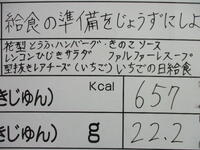 給食の準備をじょうずにしよ
花型とうふハンバーグ・きのこソース
レンコンひじきサラダ ファルファーレスープ
型抜きレアチーズ(いちご) いちごの日給食
きじゅん) Kcal 657
きじゅん) g 22.2